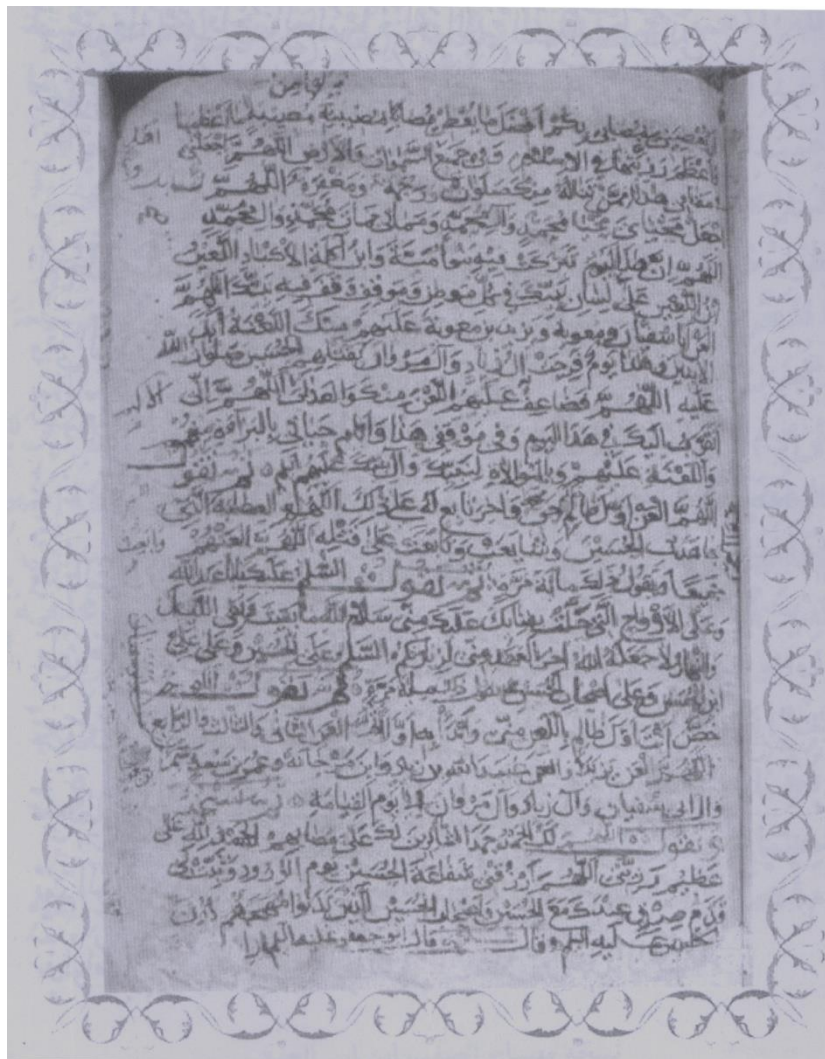 بمصابي بكم افضل ما يعطي مصابا بمصيبته مصيبة ما اعظمها
واعظم رزيتها في الاسلام وفي جميع السموات والارض اللهم اجعلني
مقامي هذا ممن تناله منك صلوات ورحمة ومغفرة اللهم
اجعل محياي محيا محمد وال محمد ومماتي ممات محمد وال محمد
اللهم ان هذا اليوم تبركت فيه بنوا امية وابن اكلة الاكباد اللعين
ابن اللعين على لسان نبيك في كل موطن وموقف وقف فيه نبيك اللهم
العن ابا سفيان ومعوية ويزيد بن معوية عليهم منك اللعنة ابد
الابدين وهذا يوم فرحت ال زياد وال مروان بقتلهم الحسين صلوات الله
عليه اللهم فضاعف عليهم اللعن منك والعذاب اللهم اني
اتقرب اليك في هذا اليوم وفي موقفي هذا وايام حياتي بالبراءة منهم
واللعنة عليهم وبالموالاة لنبيك وال نبيك عليهم السلم ثم تقول
اللهم العن اول ظالم حق واخر تابع له على ذلك اللهم العن العصابة التي
جاهدت الحسين وشايعت وتابعت على قتله اللهم العنهم
جميعا ويقول ذلك مائة مرة ثم تقول السلم عليك يا ابا عبد الله
وعلى الارواح التي حلت بفنائك عليك مني سلام الله ما بقيت وبقي الليل
والنهار ولا جعله الله اخر العهد مني لزيارتكم السلم على الحسين وعلى علي
ابن الحسين وعلى اصحاب الحسين تقول ذلك مائة مرة ثم تقول اللهم
خص انت اول ظالم باللعن مني وابدا به اولا ثم العن الثاني والثالث والرابع
اللهم العن يزيد والعن عبيد الله بن زياد وابن مرجانة وعمر بن سعد وشمرا
وال ابي سفيان وال زياد وال مروان الى يوم القيامة
تقول اللهم لك الحمد حمد الشاكرين لك على مصابهم الحمد لله على
عظيم رزيتي اللهم ارزقني شفاعة الحسين يوم الورود وثبت لي
قدم صدق عندك مع الحسين واصحاب الحسين الذين بذلوا مهجهم دون
الحسين عليه السلم وقال